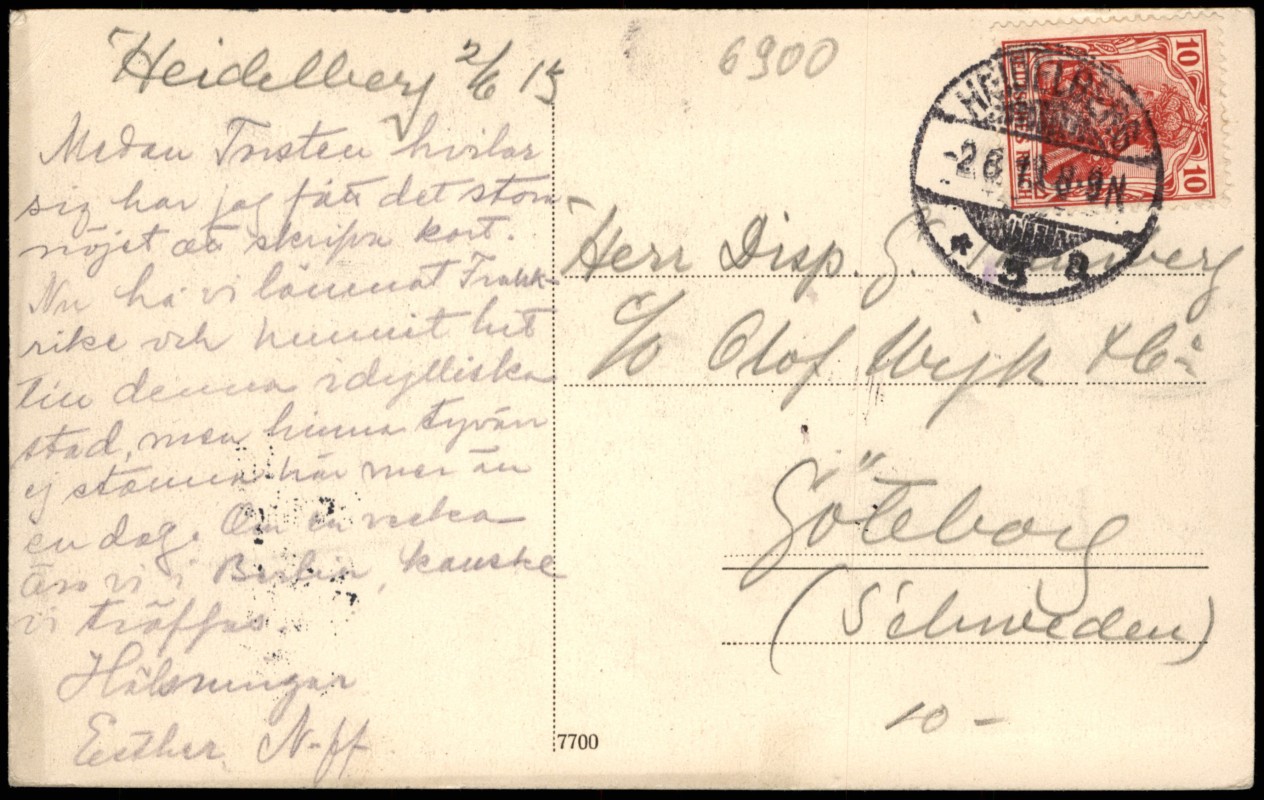 Heidelberg 2/6 13
Medan Torsten hvilar
sig har jag fått det stora
nöjet att skrifva kort.
Nu ha vi lämnat Frank-
rike och hunnit hit
till denna idylliska
stad, men hinna tyvärr
ej stanna här mer än
en dag. Om en vecka
äro vi i Berlin, kanske
vi träffas.
Hälsningar
Esther N-ff
7700
6900
10
10
HEIDELBERG
-2.6.13. 8-9N
* 3 a
Herr Disp. G.
c/o Olof Wijk & Co
Göteborg
(Schweden)
10-